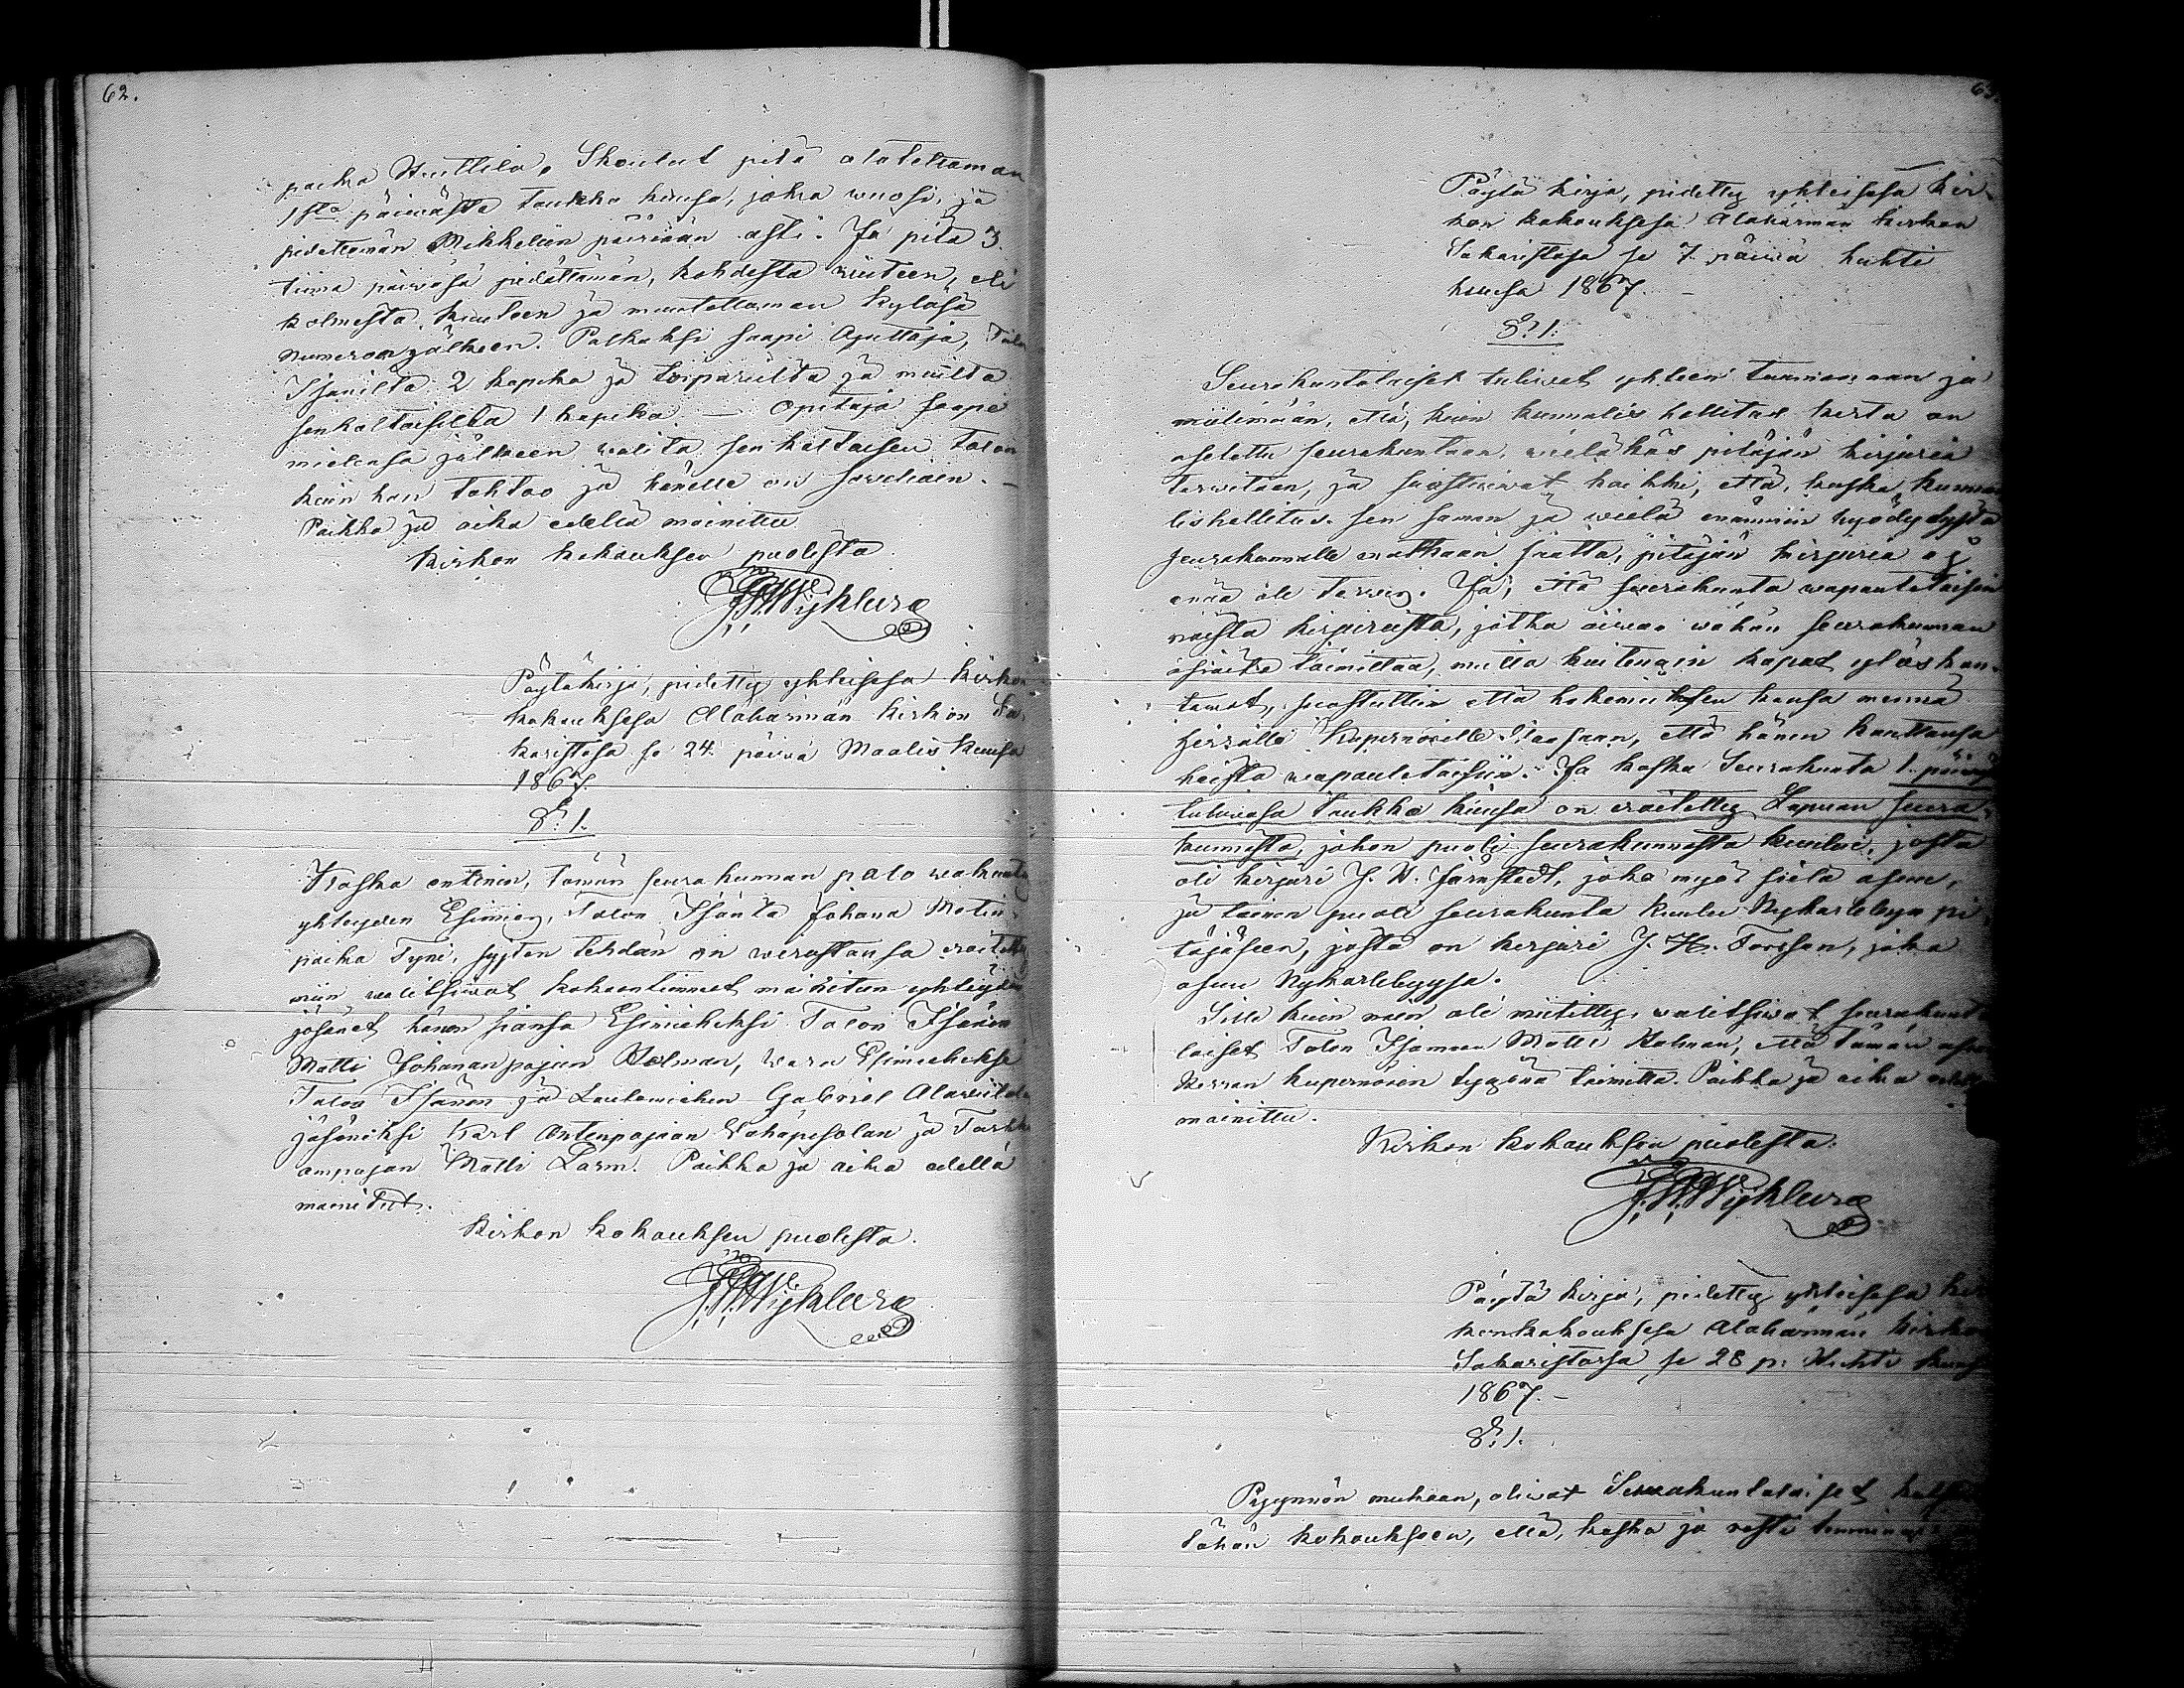 62.
paika Huttila. Skoulut pitä aloteltaman
1sta päiwästä Toukko kuusa, joka wuosi, ja
pidettämän Mikkelin päiwään asti. Ja pitä 3.
tiima päiwäsä pidättämän, kahdesta wiiteen, eli
kolmesta kuuteen ja muutettaman kyläsä
numeron jälkeen. Palkaksi saapi Opettaja,
Isänilta 2 kapeka ja torpariilta ja muilta
senkaltaisilta 1 kapeka. — Opitaja saapi
mielensä jälkeen walita senkaltaisen talon
kuin hän tahtoo ja hänelle on sowelias. —
Paikka ja aika edellä mainittu
Kirkon kokouksen puolesta
J.W. Wijklund
Pöytäkirja, pidetty yhteisesä Kirkon
kokouksesa Alahärmän kirkon Sa-
karistosa se 24. päiwä Maalis kuusa
1867.
§. 1.
Koska entinen, tämän seurakunnan palo wakuutus
yhteyden Esimies, Talon Isäntä Johana Matin
poika Tyni, syysten tehdän on wirastansa eroitettu
niin walitsiwat kokoontunnet mainitun yhteyden
jäsänet hänen siansa Esimieheksi Talon Isännän
Matti Johananpojan Kolman, wara Esimieheksi
Talon Isännän ja Lautamiehen Gabriel Alawiitala
jäseniksi Karl Antinpojan Wähäpesolan ja Tarkk
ampujan Matti Larm. Paikka ja aika edellä
mainitut.
Kirkon kokouksen puolesta.
J.W. Wijklund
63.
Pöytä kirja, pidetty yhteisesä kir-
kon kokouksesa Alahärmän kirkon
Sakaristosa se 7. päiwä huhti
kuusa 1867. —
§. 1.
Seurakuntalaiset tuliwat yhteen tuumaamaan ja
miitimään, että, kuin kunnalis hallitus kerta on
asetettu seurakuntaan, wieläkös pitäjän kirjuria
tarwitaan, ja suostuiwat kaikki, että, koska kunna
lishallitus sen saman ja wielä enämmin hyödytystä
seurakunnalle matkaan saatta, pitäjän kirjuria ej
enää ole tarwis. Ja, että seurakunta wapautetaisin
näistä kirjureista, jotka aiwan wähän seurakunnan
asioita toimittaa, mutta kuitengin kapat ylöskan-
tawat, suostuttiin että hakemuksen kansa mennä
herralle Kupernörille Waasaan, että hänen kauttansa
heistä wapautetaisiin. Ja koska Seurakunta 1. päiwä
tulewasa Toukko kuusa on eroitettu Lapuan seura-
kunnasta, johon puoli seurakunnasta kuului, josta
oli kirjuri J. W. Järnstedt, joka myös sielä asuu,
ja toinen puoli seurakunta kuului Nykarlebyn pi-
täjäseen, josta on kirjuri J. H. Forssan, joka
asuu Nykarlebyysä.
Sille kuin näin oli miitittu, walitsiwat seurakunta
laiset Talon Isännän Matti Kolman, että tämän asian
Herran kupernörin tygönä toimitta. Paikka ja aika edellä
mainittu.
Kirkon kokouksen puolesta.
J.W. Wijklund
Pöytä kirja, pidetty yhteisesä kir
konkokouksesa Alahärmän kirkon
Sakaristossa se 28 p: Huhti kuusa
1867. —
§. 1.
Pyynnön mukaan, oliwat Seurakuntalaiset
tähän kokoukseen, että, koska jo